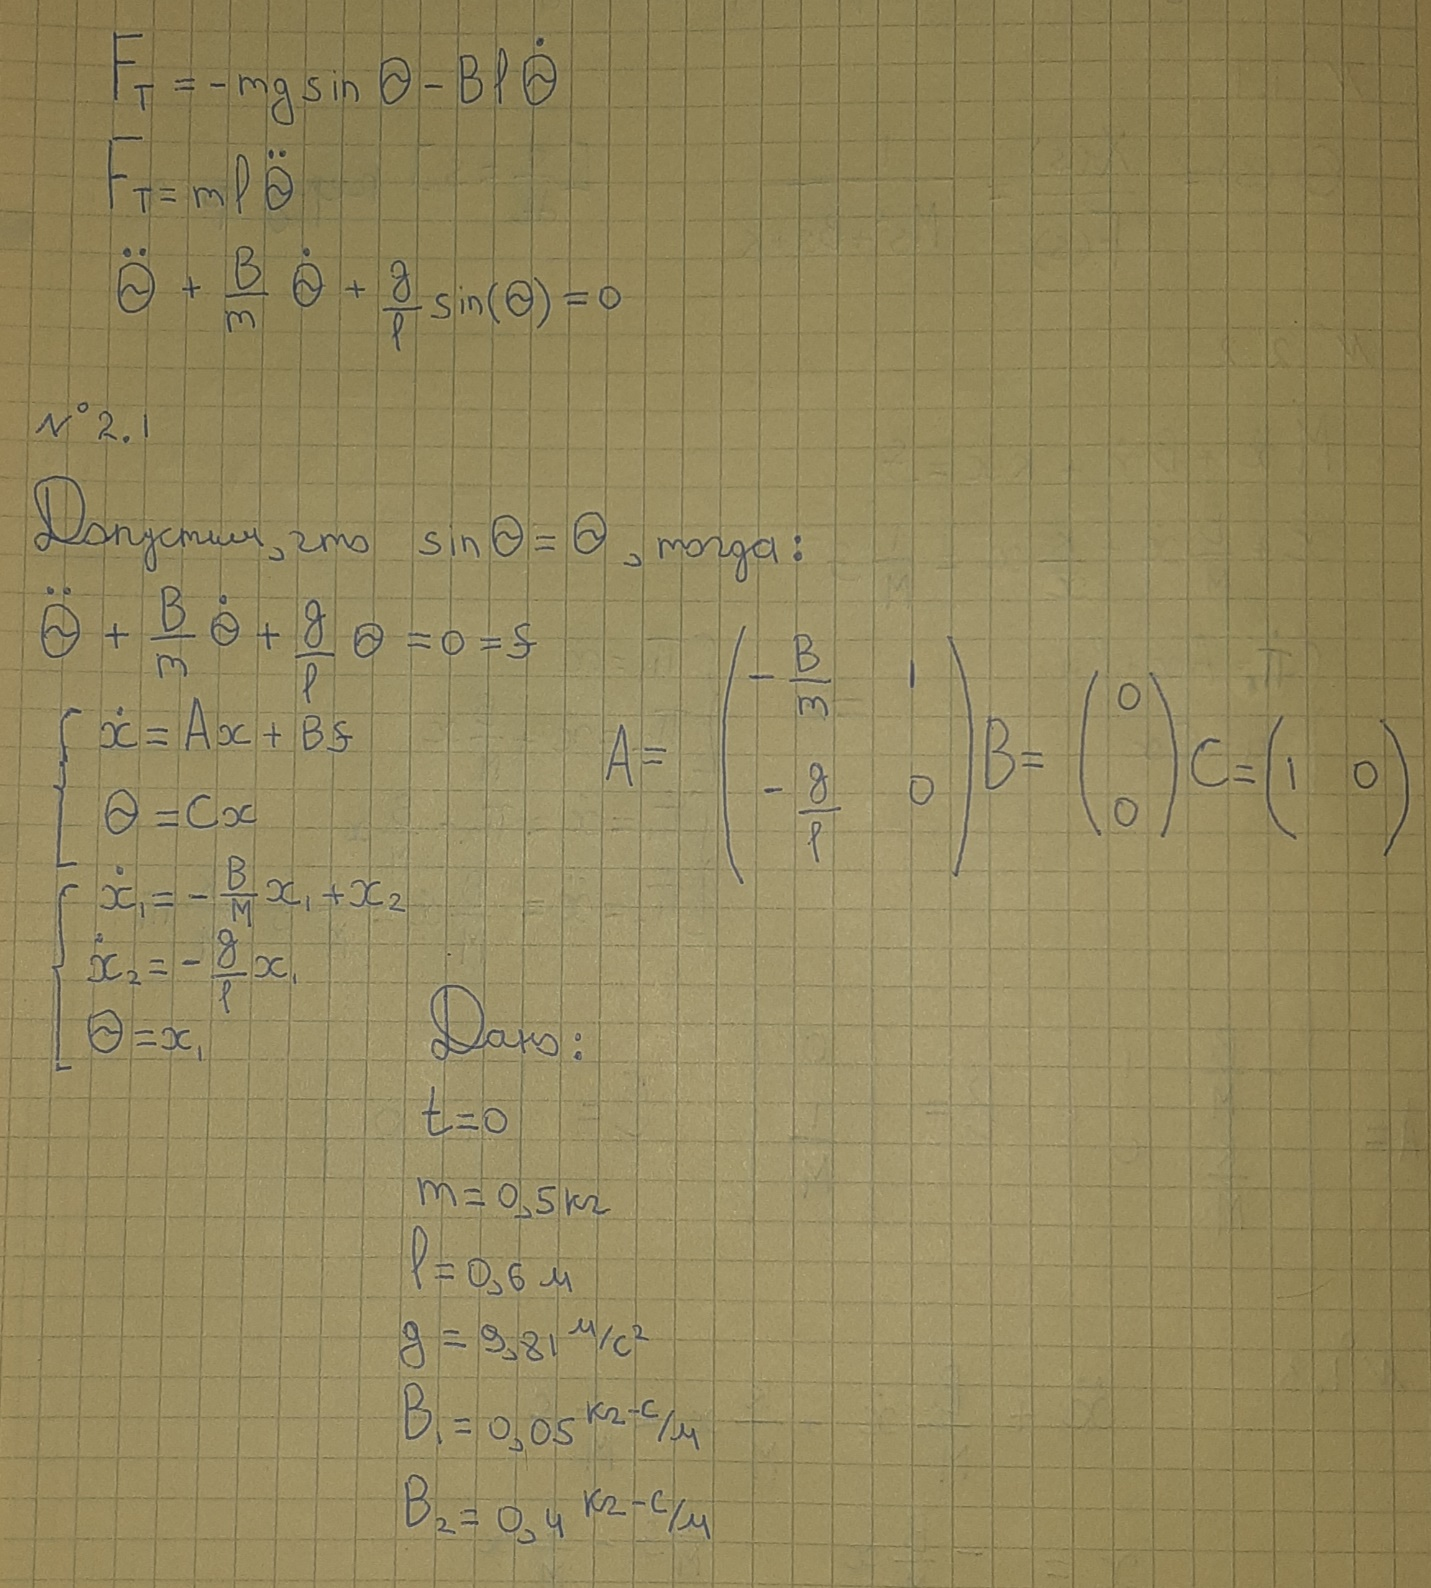 F_T = -mg sin Θ - B l Θ̇
F_T = m l Θ̈
Θ̈ + B/m Θ̇ + g/l sin(Θ) = 0
N° 2.1
Допустим, что sin Θ = Θ, тогда:
Θ̈ + B/m Θ̇ + g/l Θ = 0 = f
ẋ = Ax + Bf
Θ = Cx
A = ( -B/m 1 ; -g/l 0 ) B = ( 0 ; 0 ) C = ( 1 0 )
ẋ₁ = -B/M x₁ + x₂
ẋ₂ = -g/l x₁
Θ = x₁
Дано:
t = 0
m = 0,5 кг
l = 0,6 м
g = 9,81 м/с²
B₁ = 0,05 кг-с/м
B₂ = 0,4 кг-с/м